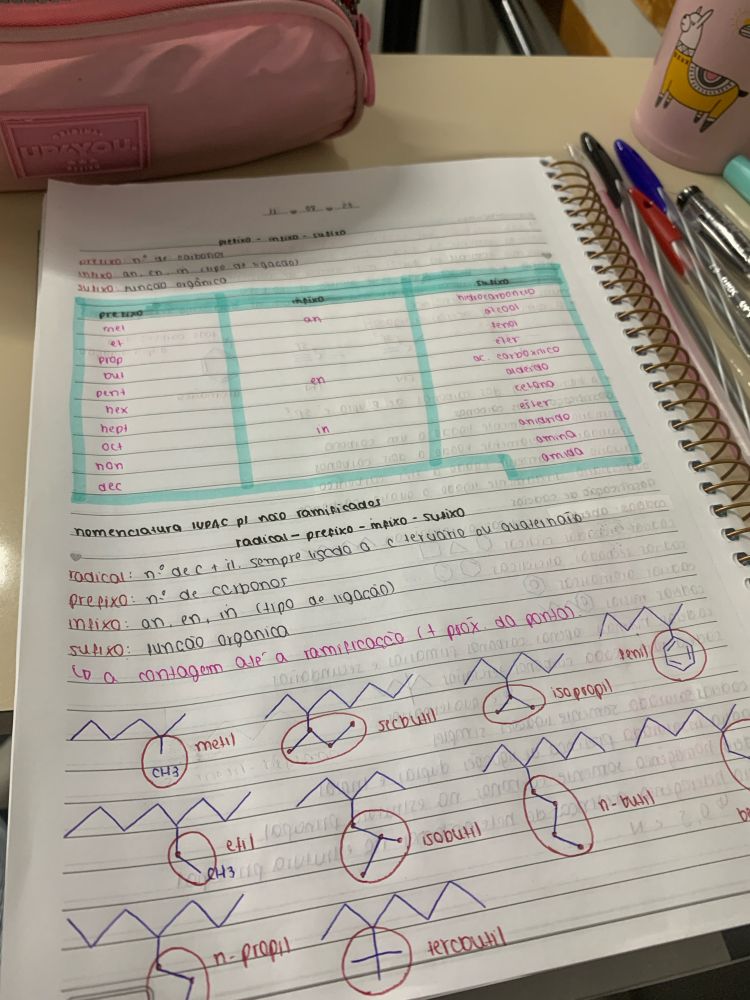 ORIGINAL
UP4YOU
11 . 08 . 23
prefixo - infixo - sufixo
prefixo: n.º de carbonos
infixo: an, en, in (tipo de ligação)
sufixo: função orgânica
prefixo infixo sufixo
met an hidrocarboneto
et álcool
prop fenol
but éter
pent en ác. carboxílico
hex aldeído
hept in cetona
oct éster
non anidrido
dec amina
amida
nomenclatura IUPAC p/ não ramificados
radical - prefixo - infixo - sufixo
radical: n.º de c + il, sempre ligado a c terciário ou quaternário
prefixo: n.º de carbonos
infixo: an, en, in (tipo de ligação)
sufixo: função orgânica
↳ a contagem até a ramificação (+ próx. da ponta)
metil secbutil isopropil fenil
CH3
etil isobutil n-butil be
CH3
n-propil tercbutil